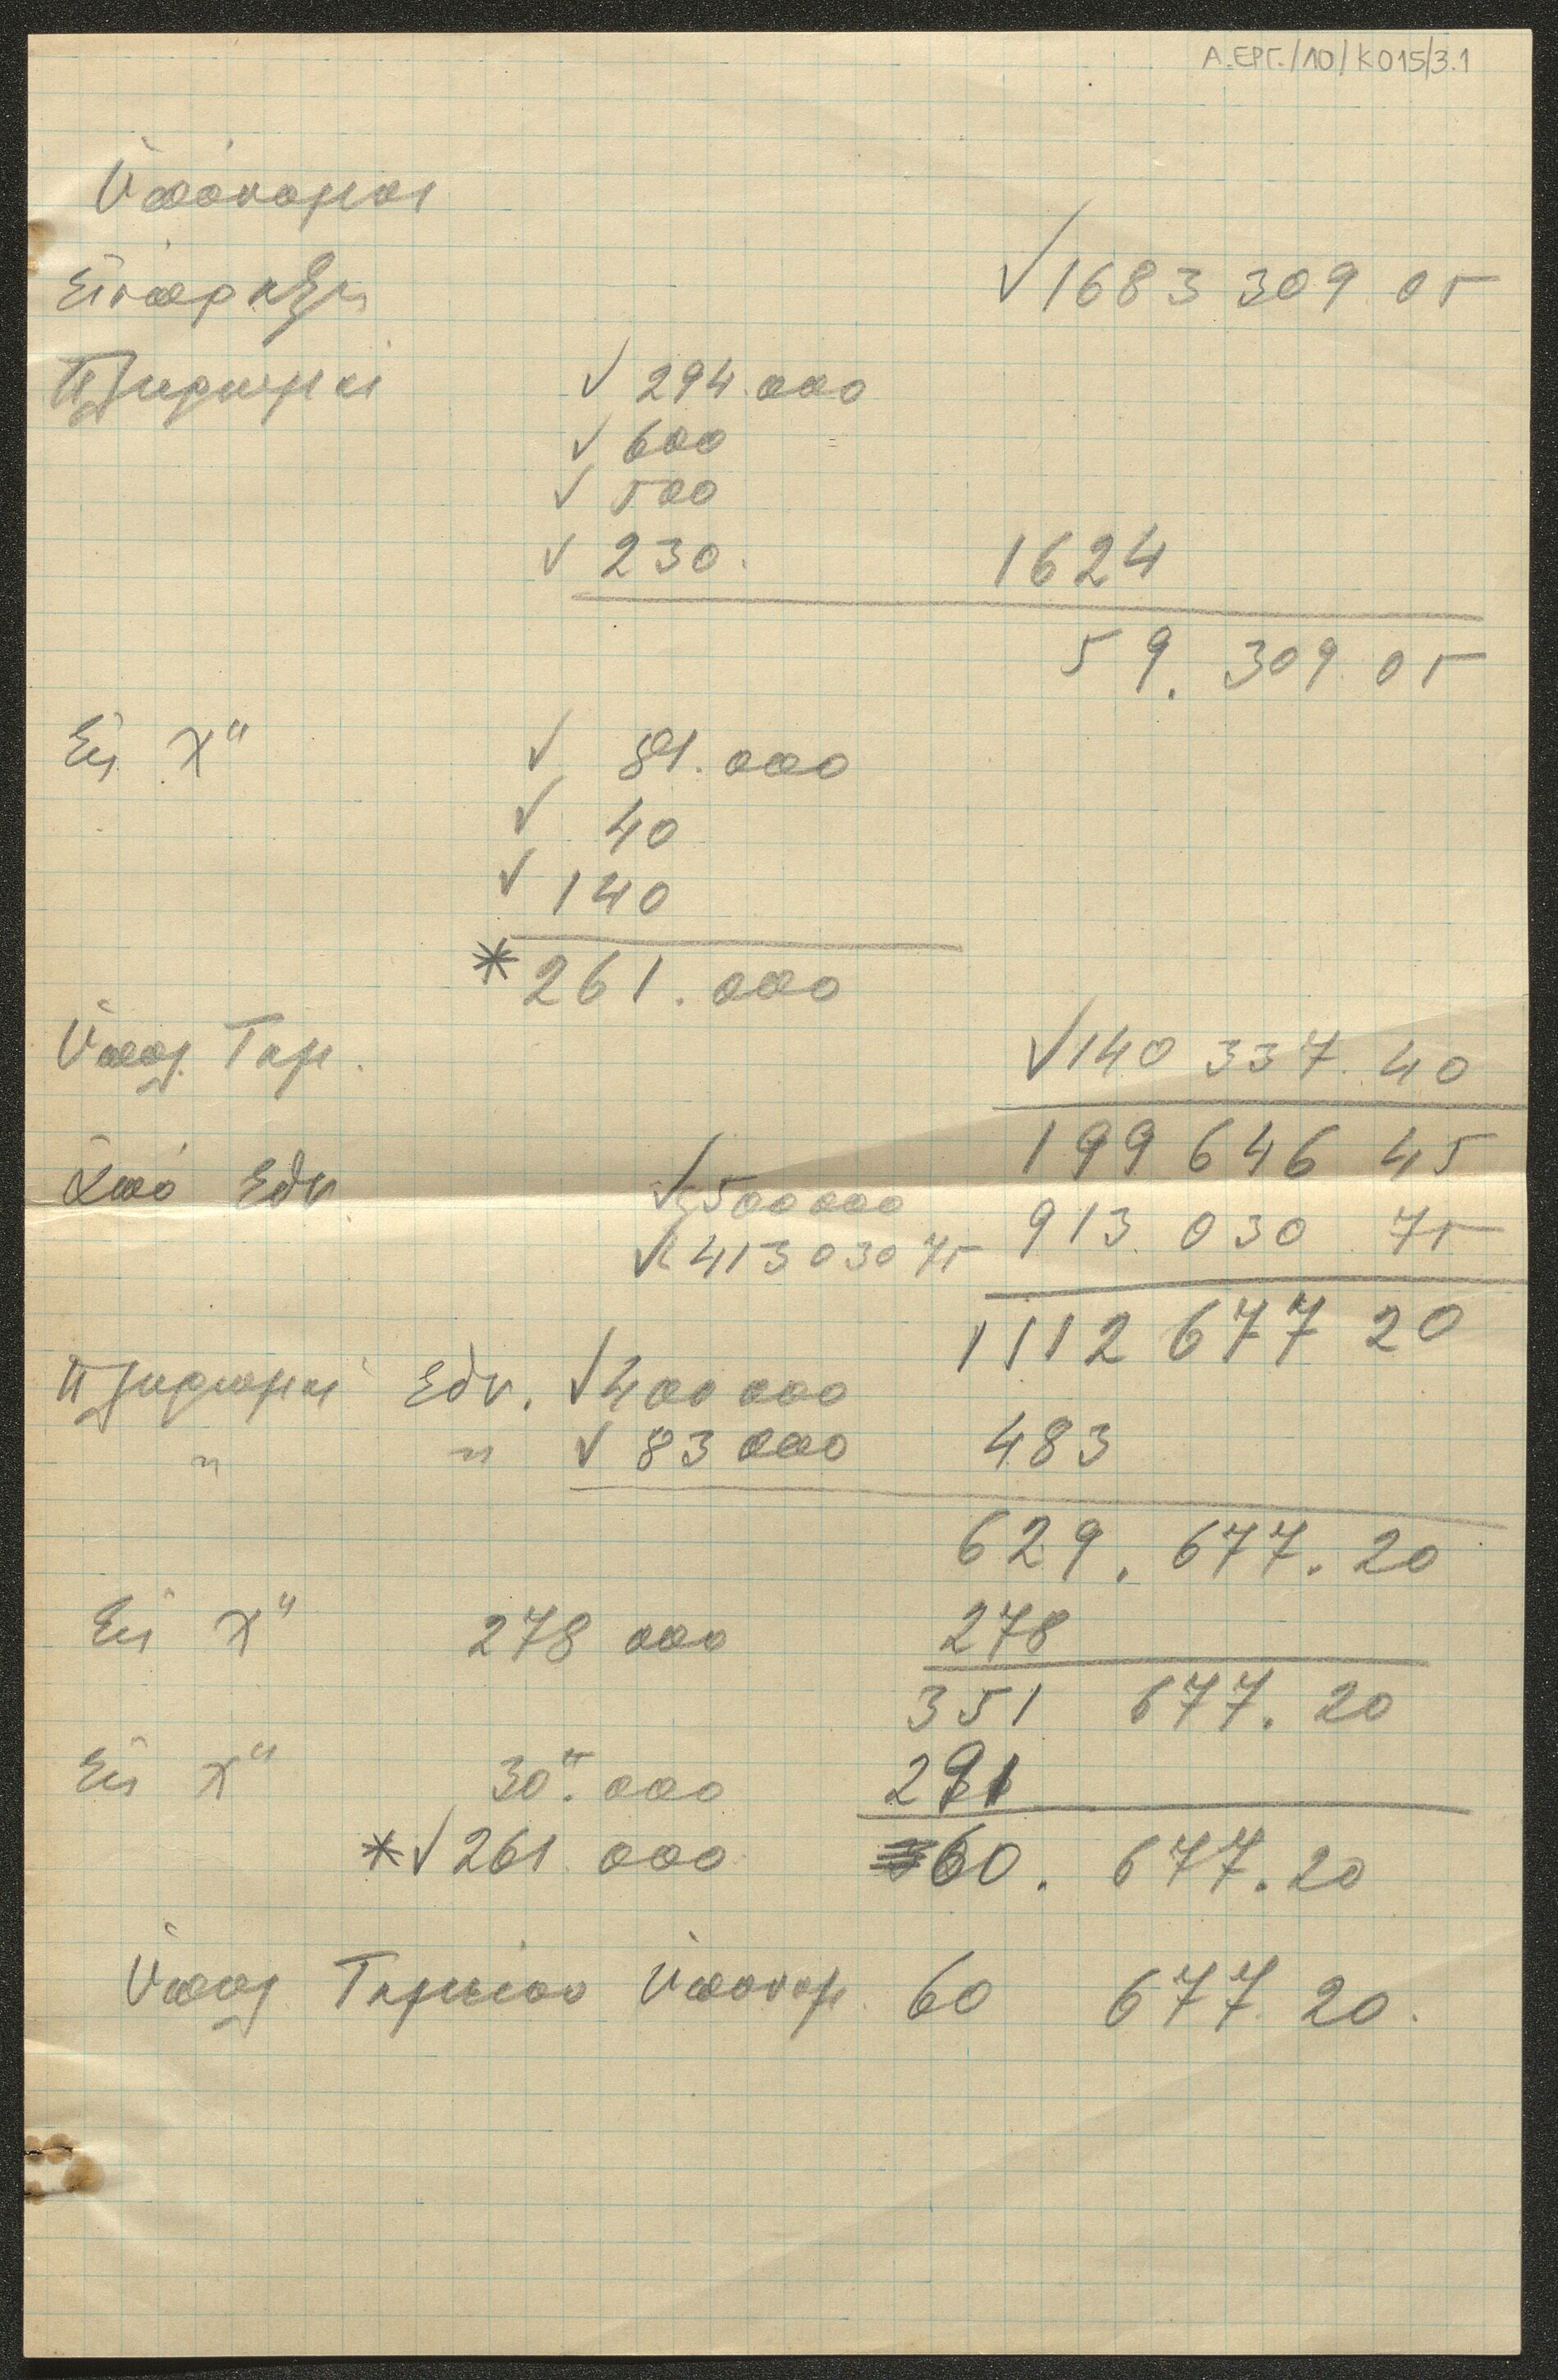 Α.ΕΡΓ./10/Κ015/3.1
Ὑπόνομοι
Εἴσπραξις √1683 309 05
Πληρωμαί √ 294.000
√ 600
√ 500
√ 230. 1624
59. 309 05
Εἰς Χ" √ 81.000
√ 40
√ 140
* 261.000
Ὑπόλ. Ταμ. √140 337. 40
199 646 45
Ἀπό Ἐθν. √500000 913 030 75
√413 030 75
1112 677 20
Πληρωμαί Ἐθν. √400 000
" " √ 83 000 483
629. 677. 20
Εἰς Χ" 278 000 278
351 677. 20
Εἰς Χ" 30". 000 291
*√261 000 60. 677. 20
Ὑπόλ Ταμείου Ὑπονομ. 60 677 20.